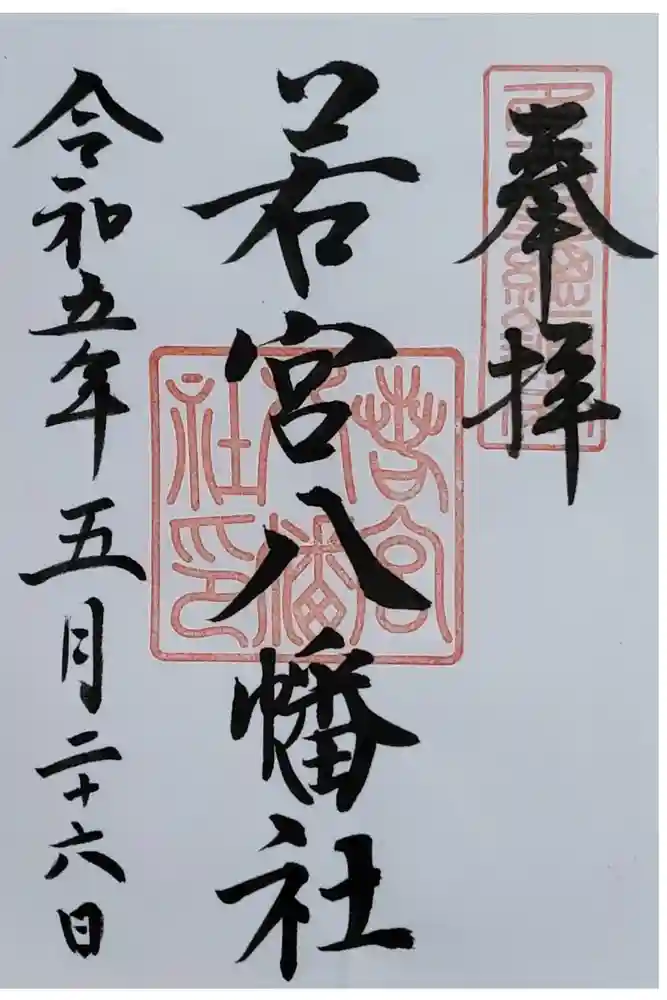 奉拝
若宮八幡社
若宮八幡社印
令和五年五月二十六日